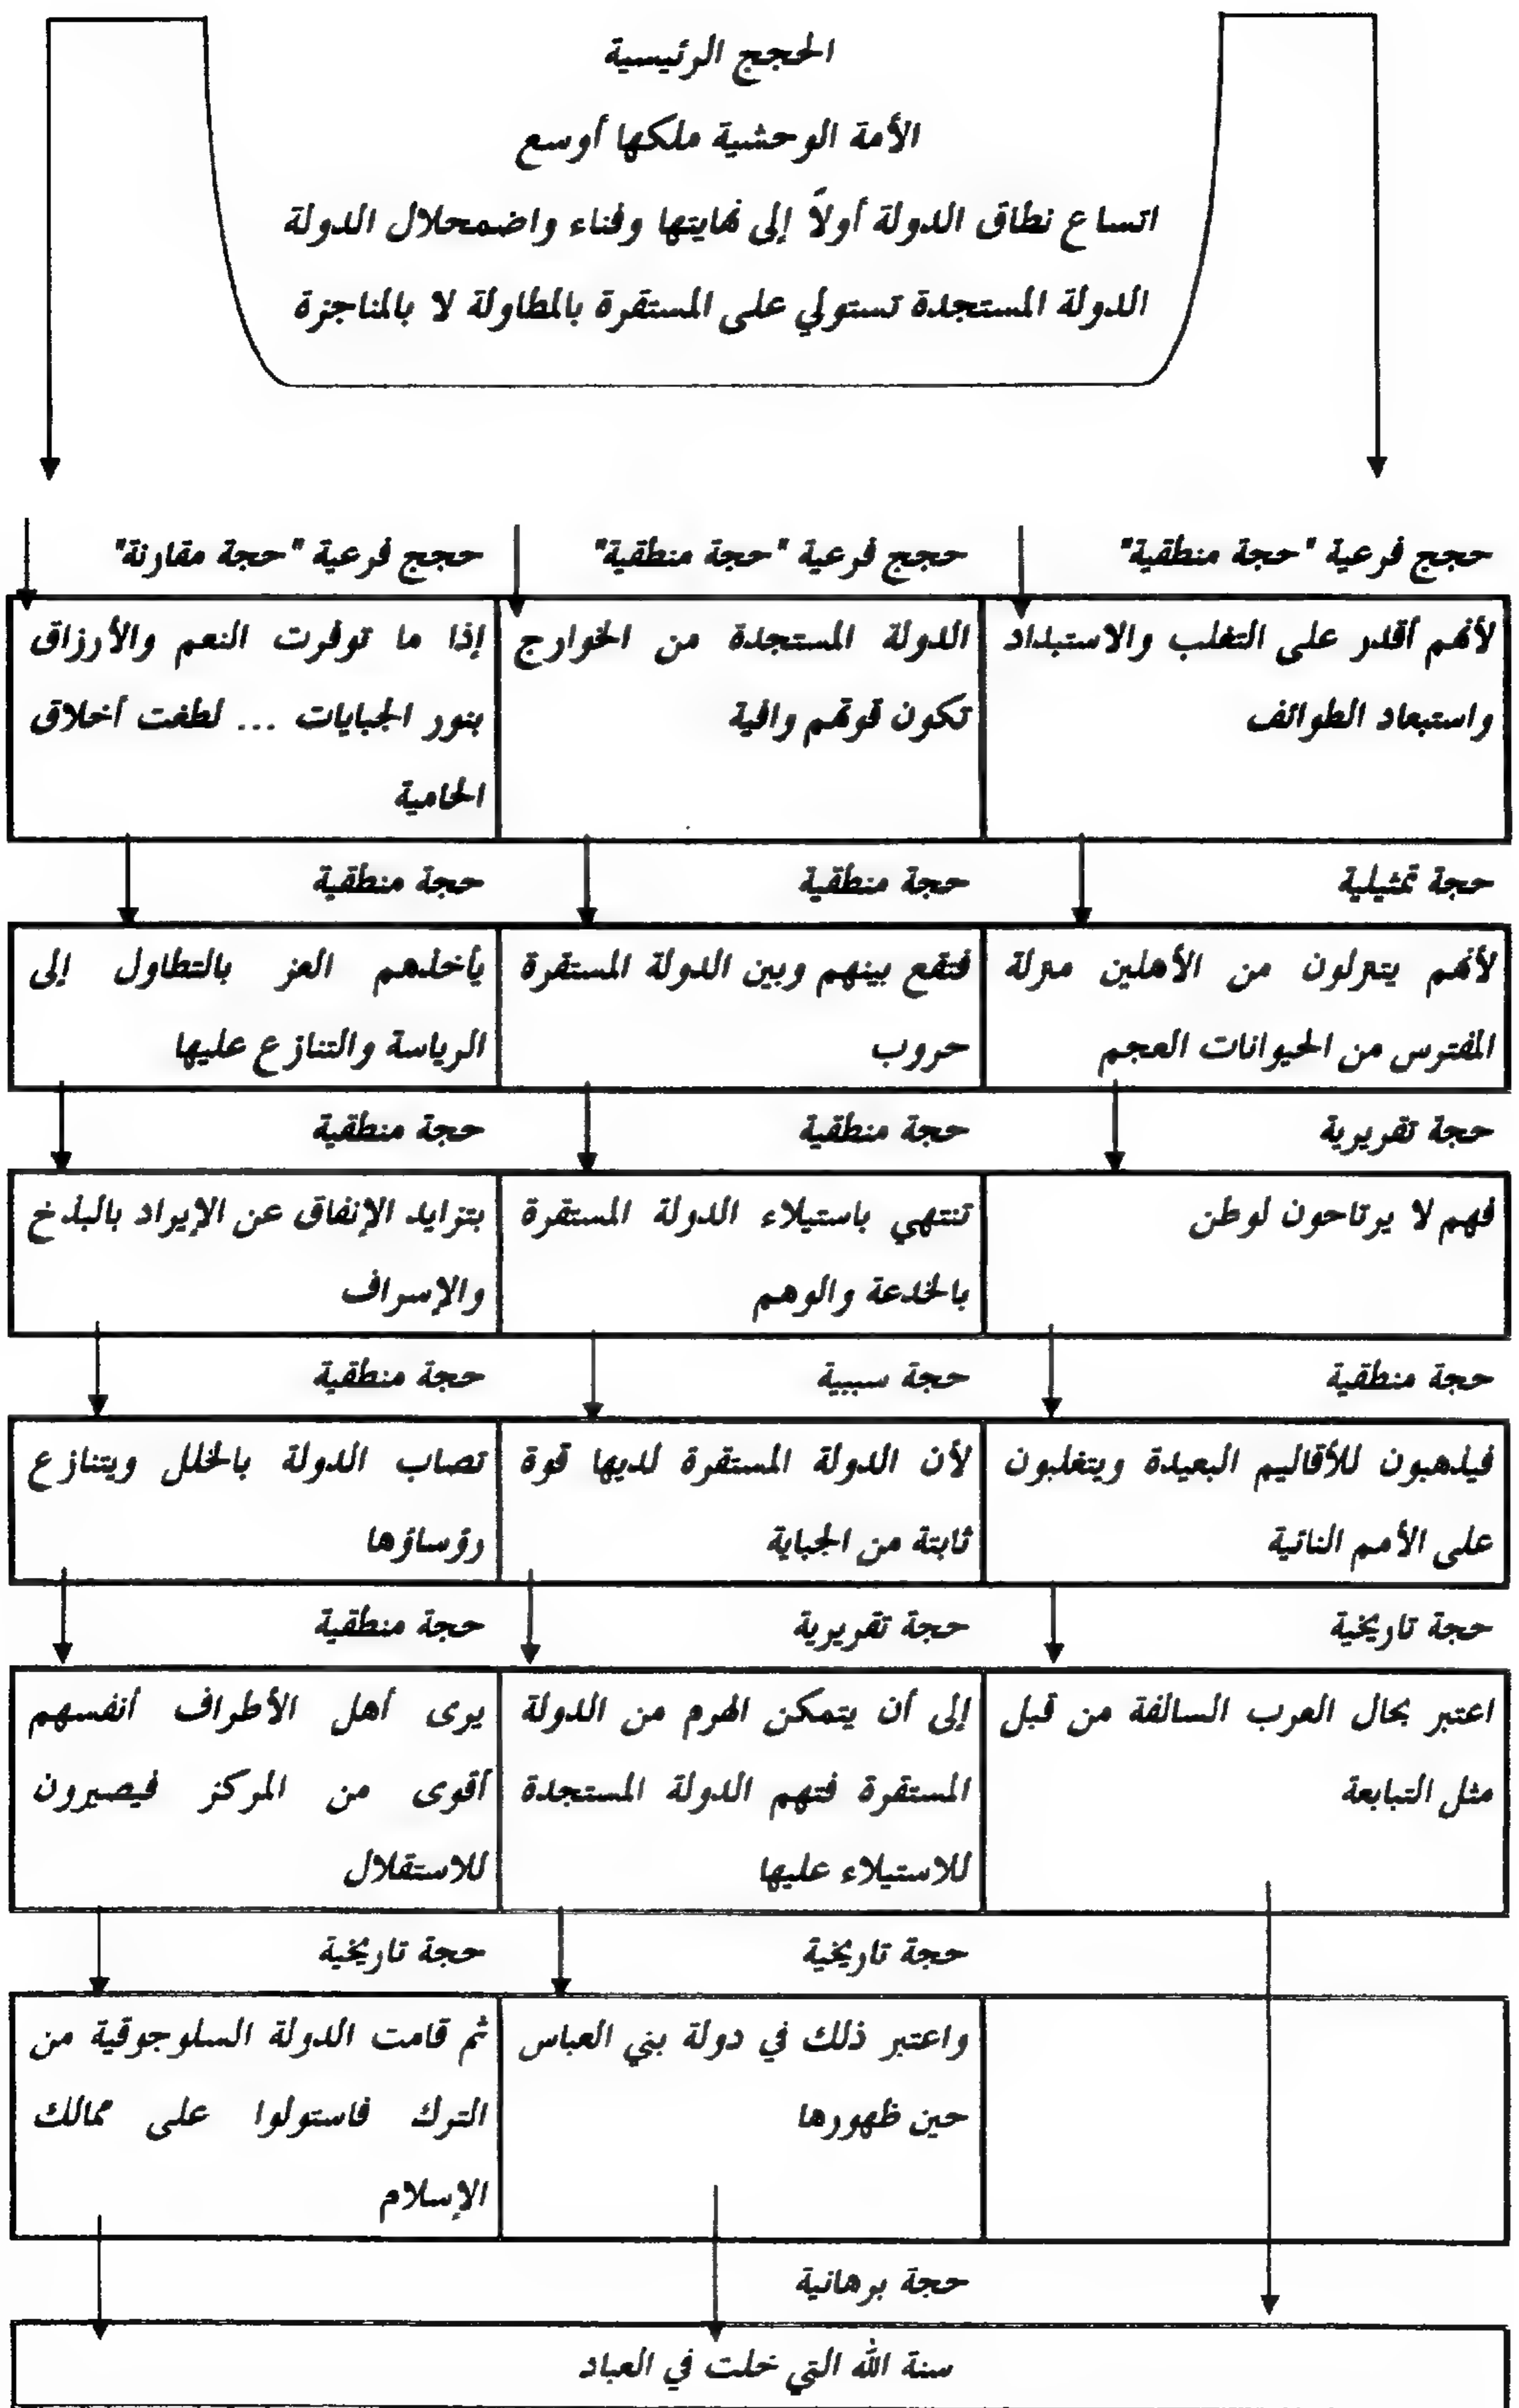 الحجج الرئيسية
الأمة الوحشية ملكها أوسع
اتساع نطاق الدولة أولاً إلى نهايتها وفناء واضمحلال الدولة
الدولة المستجدة تستولي على المستقرة بالمطاولة لا بالمناجزة
حجج فرعية "حجة منطقية"
حجج فرعية "حجة منطقية"
حجج فرعية "حجة مقارنة"
لأنهم أقدر على التغلب والاستبداد
واستبعاد الطوائف
الدولة المستجدة من الخوارج
تكون قوتهم وافية
إذا ما توفرت النعم والأرزاق
بنور الجبايات ... لطفت أخلاق
الحامية
حجة تمثيلية
حجة منطقية
حجة منطقية
لأنهم يتنزلون من الأهلين منزلة
المفترس من الحيوانات العجم
فتقع بينهم وبين الدولة المستقرة
حروب
يأخذهم العز بالتطاول إلى
الرياسة والتنازع عليها
حجة تقريرية
حجة منطقية
حجة منطقية
فهم لا يرتاحون لوطن
تنتهي باستيلاء الدولة المستقرة
بالخدعة والوهم
بتزايد الإنفاق عن الإيراد بالبذخ
والإسراف
حجة منطقية
حجة سببية
حجة منطقية
فيذهبون للأقاليم البعيدة ويتغلبون
على الأمم النائية
لأن الدولة المستقرة لديها قوة
ثابتة من الجباية
تصاب الدولة بالخلل ويتنازع
رؤساؤها
حجة تاريخية
حجة تقريرية
حجة منطقية
اعتبر بحال العرب السالفة من قبل
مثل التبابعة
إلى أن يتمكن الهرم من الدولة
المستقرة فتهم الدولة المستجدة
للاستيلاء عليها
يرى أهل الأطراف أنفسهم
أقوى من المركز فيصيرون
للاستقلال
حجة تاريخية
حجة تاريخية
واعتبر ذلك في دولة بني العباس
حين ظهورها
ثم قامت الدولة السلوجوقية من
الترك فاستولوا على ممالك
الإسلام
حجة برهانية
سنة الله التي خلت في العباد